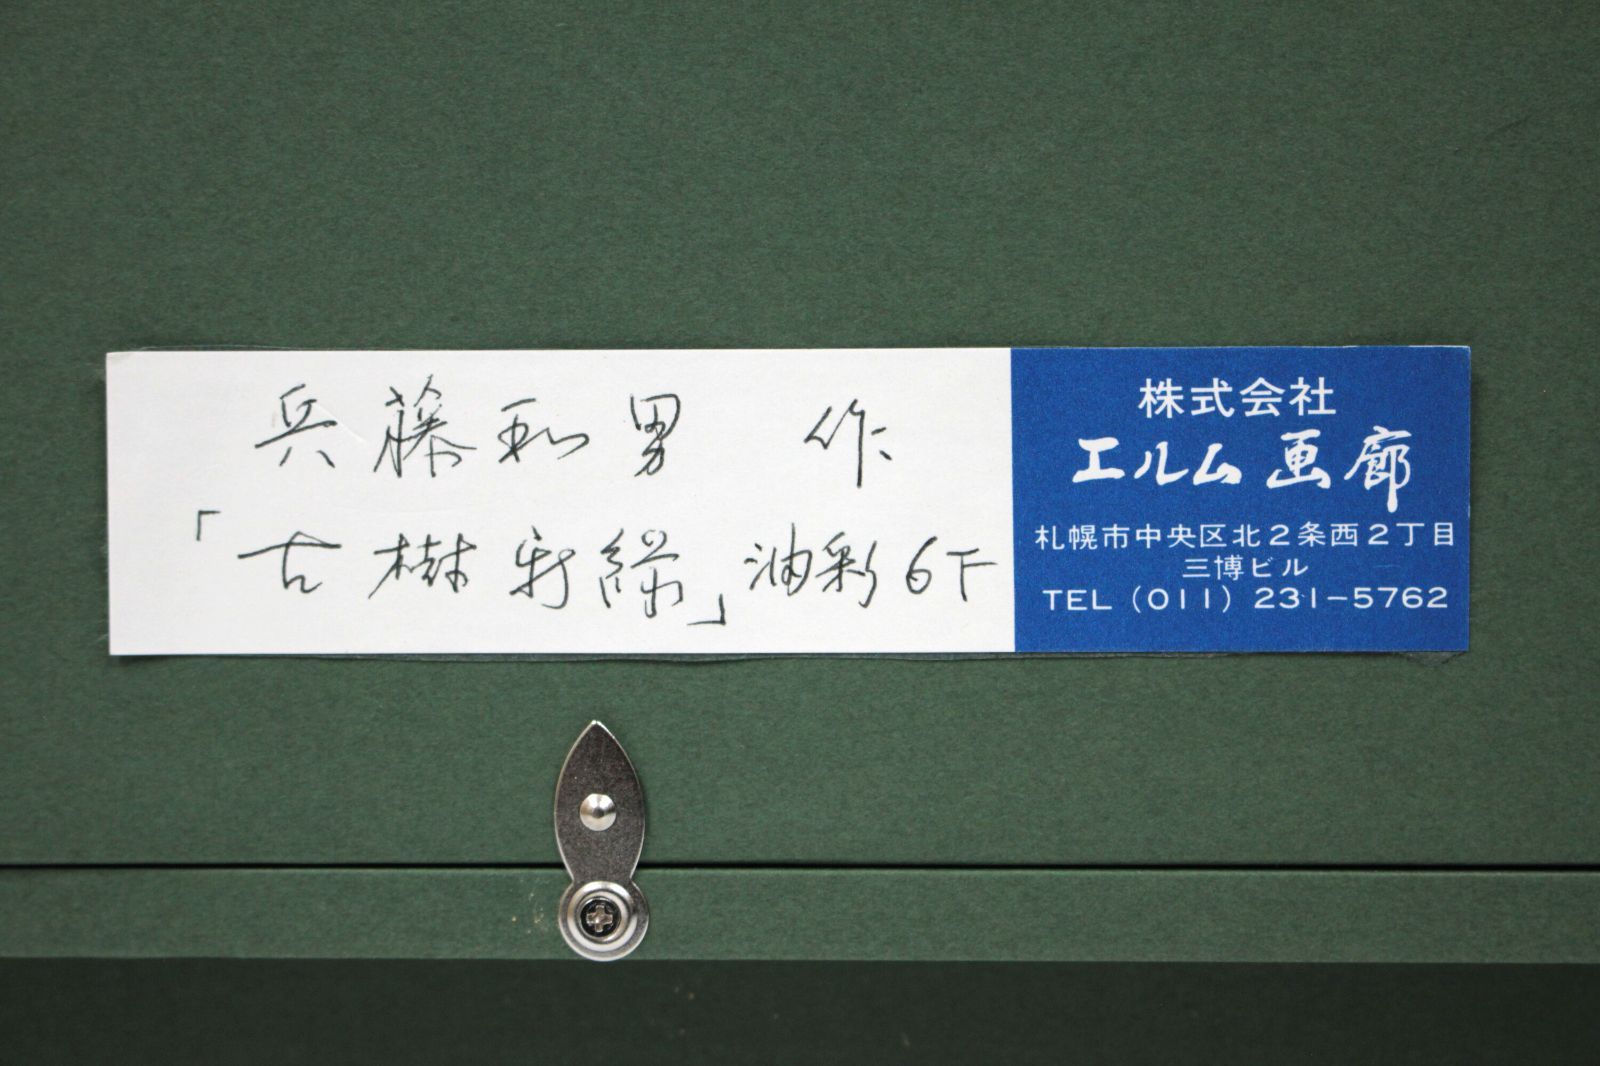 兵藤和男 作
「古樹新緑」油彩6F
株式会社
エルム画廊
札幌市中央区北2条西2丁目
三博ビル
TEL (011) 231-5762